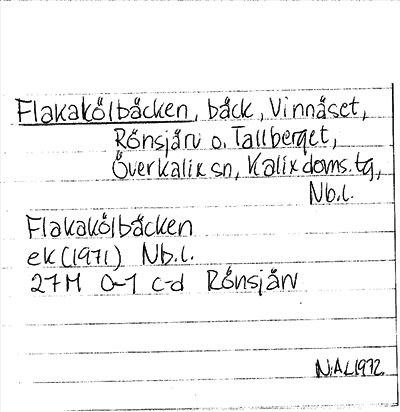 Flakakölbäcken, bäck, Vinnåset,
Rönsjärv o. Tallberget,
Överkalix sn, Kalix doms. tg,
Nb.l.
Flakakölbäcken
ek (1971) Nb.l.
27M 0-1 c-d Rönsjärv
N:AL1972